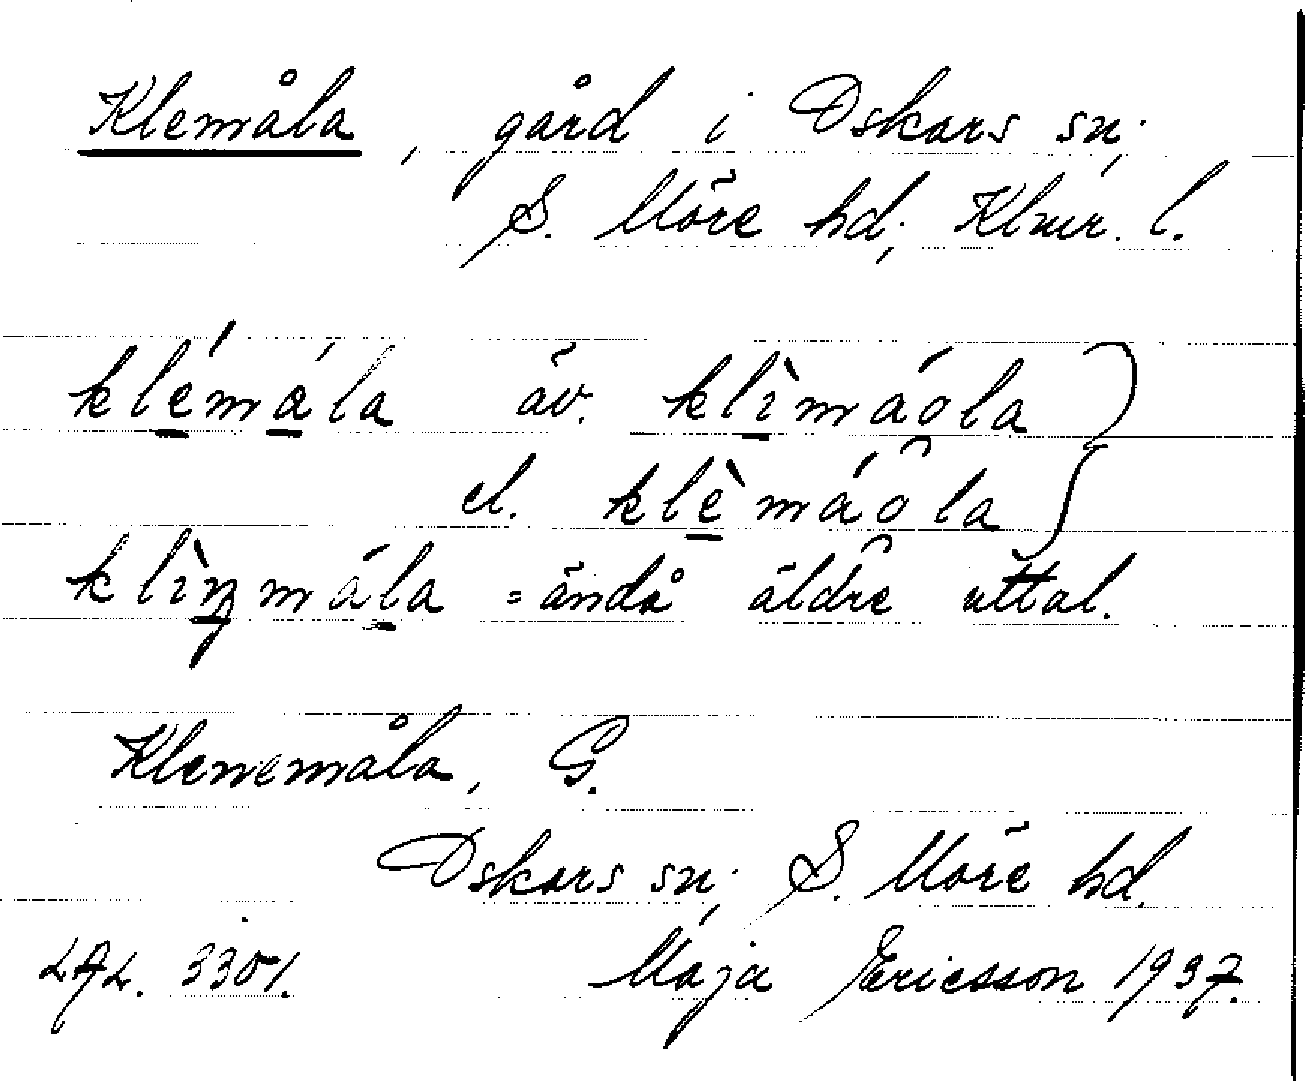 Klemåla, gård i Oskars sn;
S. Möre hd; Klmr. l.
klémála äv. klìmáola
el. klèmáola
klìŋmála = ändå äldre uttal.
Klenemåla, G.
Oskars sn; S. Möre hd.
LAL. 3301. Maja Ericsson 1937.